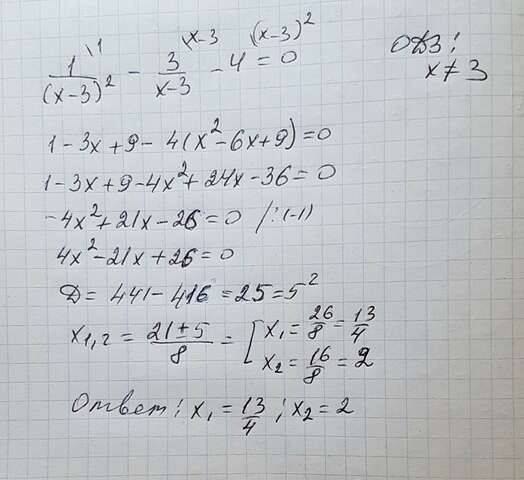 1/(x-3)² \1 - 3/(x-3) \x-3 - 4 \(x-3)² = 0
ОДЗ:
x ≠ 3
1 - 3x + 9 - 4(x² - 6x + 9) = 0
1 - 3x + 9 - 4x² + 24x - 36 = 0
-4x² + 21x - 26 = 0 /:(-1)
4x² - 21x + 26 = 0
D = 441 - 416 = 25 = 5²
x₁,₂ = (21 ± 5)/8 = [ x₁ = 26/8 = 13/4
x₂ = 16/8 = 2
Ответ: x₁ = 13/4 ; x₂ = 2